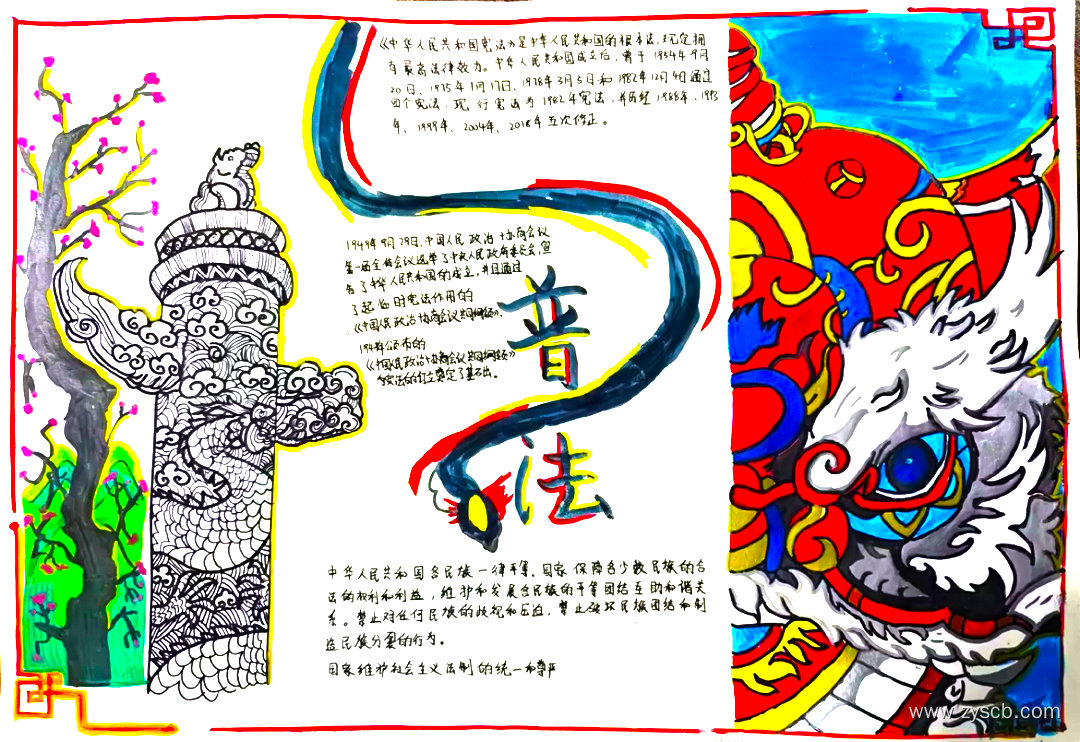 《中华人民共和国宪法》是中华人民共和国的根本法,规定拥
有最高法律效力。中华人民共和国成立后,曾于1954年9月
20日、1975年1月17日、1978年3月5日和1982年12月4日通过
四个宪法,现行宪法为1982年宪法,并历经1988年、1993
年、1999年、2004年、2018年五次修正。
1949年9月29日,中国人民政治协商会议
第一届全体会议选举了中央人民政府委员会,宣
告了中华人民共和国的成立,并且通过
了起临时宪法作用的
《中国人民政治协商会议共同纲领》。
1949年公布的
《中国人民政治协商会议共同纲领》
为宪法的订立奠定了基石出。
普
法
中华人民共和国各民族一律平等,国家保障各少数民族的合
法的权利和利益,维护和发展各民族的平等团结互助和谐关
系。禁止对任何民族的歧视和压迫,禁止破坏民族团结和制
造民族分裂的行为。
国家维护社会主义法制的统一和尊严
www.zyscb.com